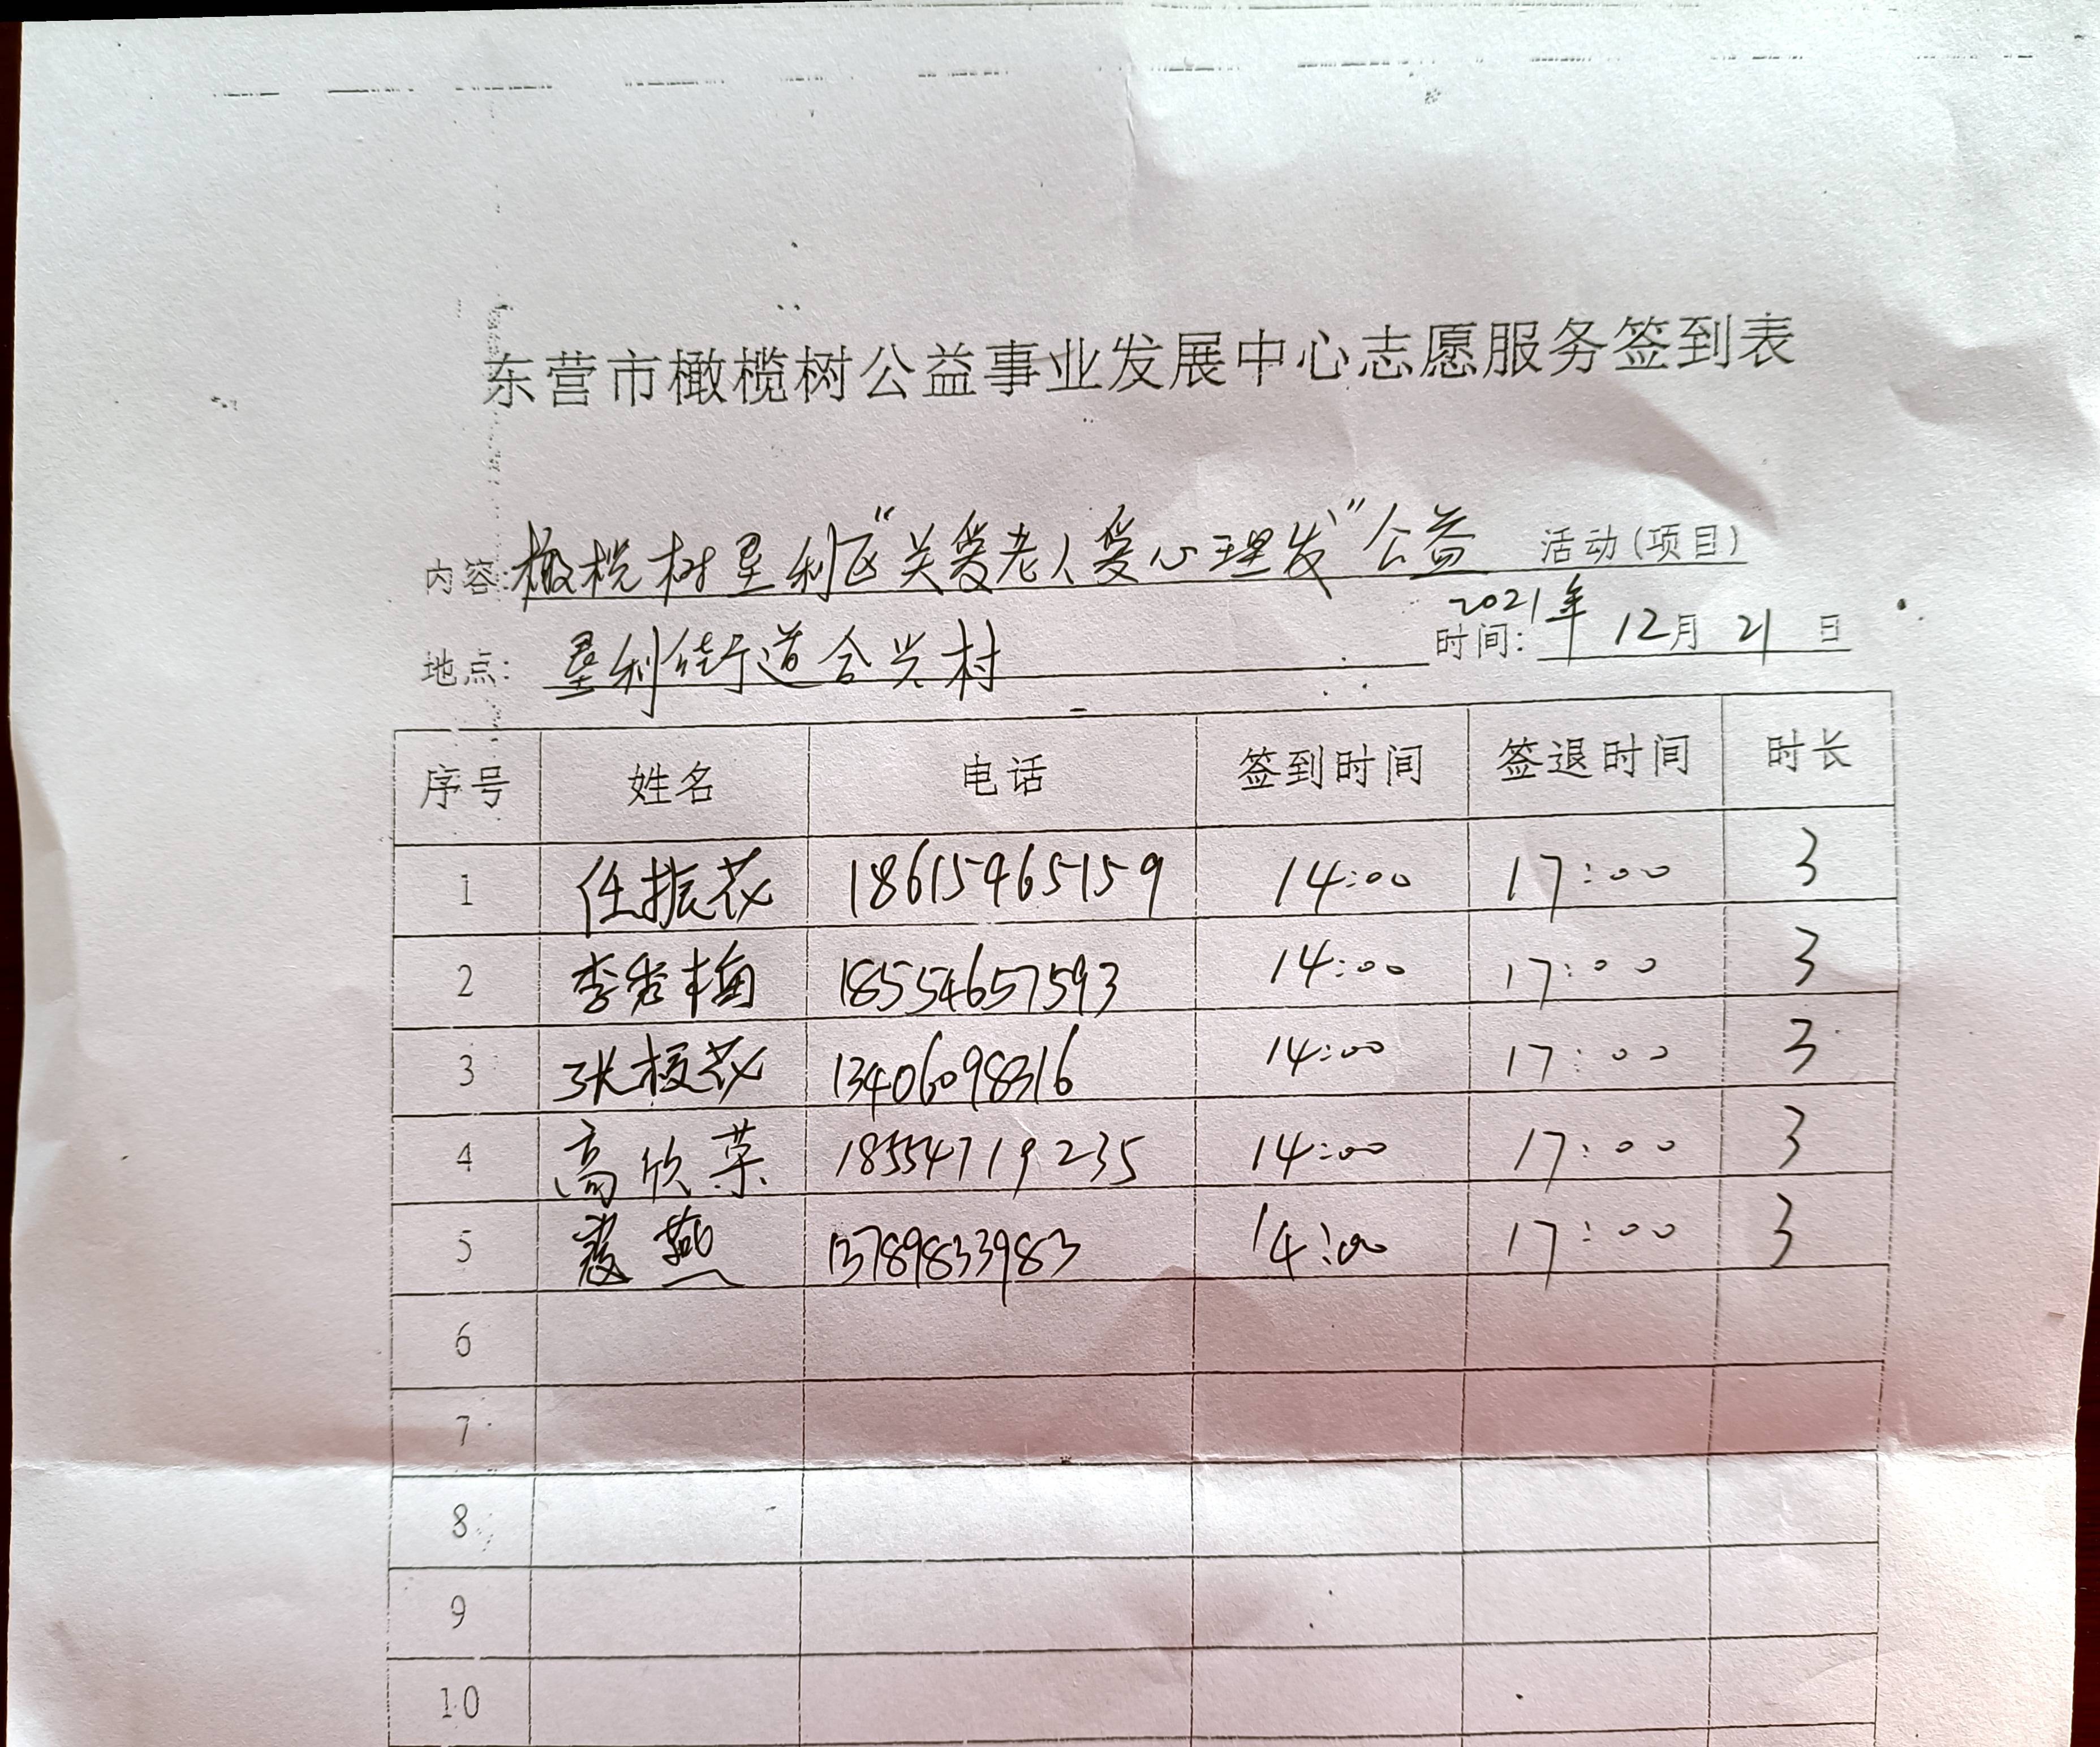 东营市橄榄树公益事业发展中心志愿服务签到表
内容:橄榄树垦利区“关爱老人爱心理发”公益 活动(项目)
地点: 垦利街道合兴村 时间: 2021年 12月 21 日
序号 姓名 电话 签到时间 签退时间 时长
1 任振花 18615465159 14:00 17:00 3
2 李秀梅 18554657593 14:00 17:00 3
3 张 花 13406098316 14:00 17:00 3
4 高欣荣 18554719235 14:00 17:00 3
5 燕 13789833983 14:00 17:00 3
6
7
8
9
10